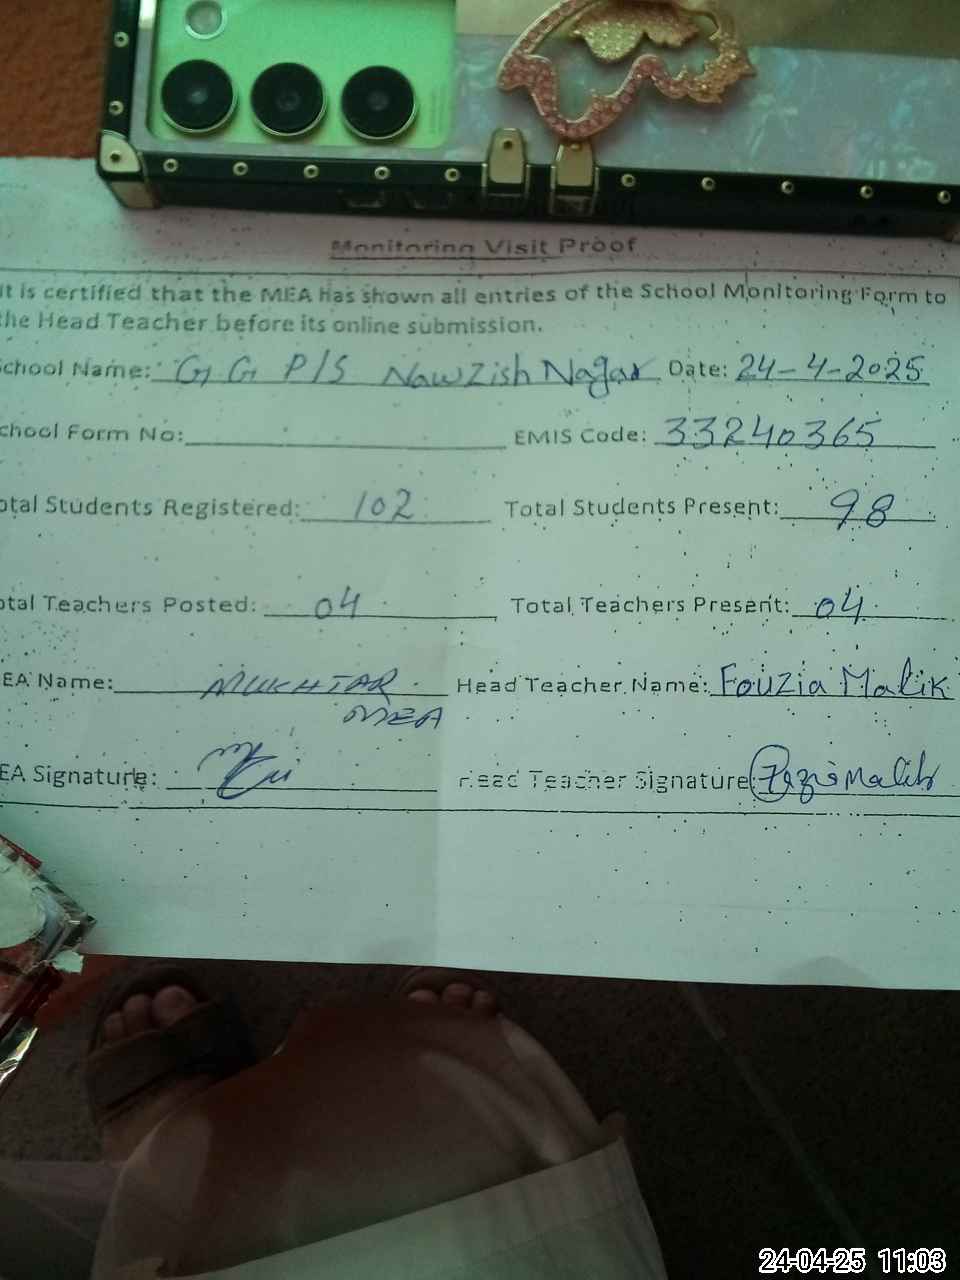 Monitoring Visit Proof
It is certified that the MEA has shown all entries of the School Monitoring Form to
the Head Teacher before its online submission.
School Name: G.G P/S Nawzish Nagar Date: 24-4-2025
chool Form No: EMIS Code: 33240365
otal Students Registered: 102 Total Students Present: 98
otal Teachers Posted: 04 Total Teachers Present: 04
EA Name: MUKHTAR Head Teacher Name: Fouzia Malik
MEA
EA Signature: Head Teacher Signature: Fozia Malik
24-04-25 11:03